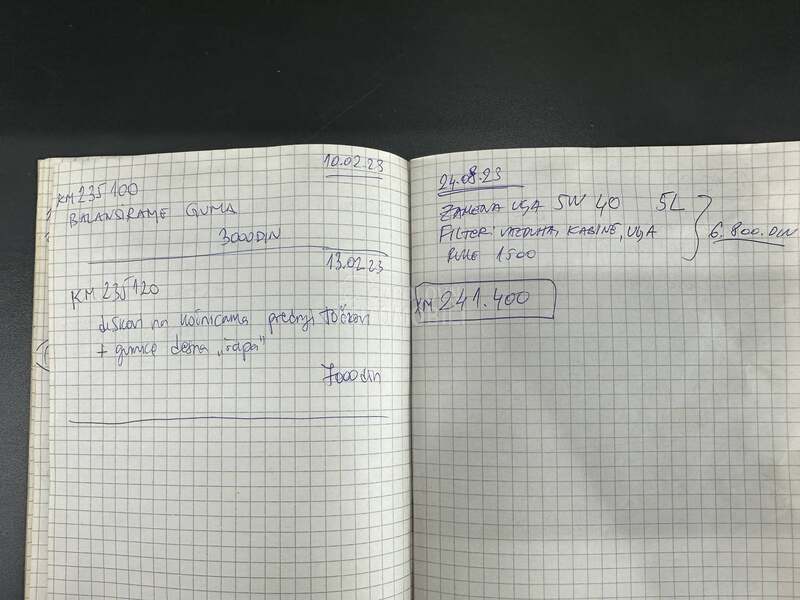 10.02.23
KM 235100
BALANSIRAME GUMA
3000DIN
13.02.23
KM 235120
diskovi na kočnicama prednji točkovi
+ gumice desna „šapa"
7000din
24.08.23
ZAMENA ULJA 5W 40 5L
FILTERI VAZDUHA, KABINE, ULJA
RUKE 1500
6.800.DIN
KM 241.400